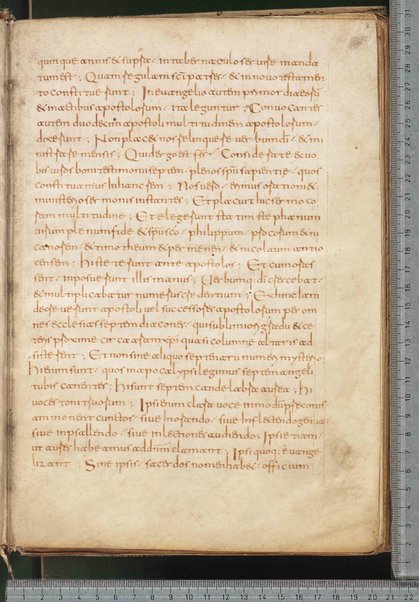 quinque annis & supra · in tabernaculo seruire manda
tum est ; Quam regulam sci patres · & in nouo testamen
to constituerunt ; In euangelio autem primor diaconsu
& in actibus apostolorum · ita leguntur ; Conuocantes
autem duodecim apostoli multitudinem apostolorum ·
dixerunt ; Non placet nos relinquere uerbum di · & mi
nistrare mensis ; Quid ergo est frs · Considerate ex uo
bis uiros boni testimonii septem · plenos spu sapientie · quos
constituamus in hanc rem ; Nos uero · erimus orationi &
ministerio sermonis instantes ; Et placuit hic sermo co
ram multitudine ; Et elegerunt stratim stephanum
uirum plenum fide & spu sco · philippum · prochorum & ni
canorem · & timotheum & permenen · & nicolaum antio
censem ; hi steterunt ante apostolos ; Et cum oras
sent · inposuerunt illis manus ; Uerbumq: di crescebat ·
& multiplicabatur numerus credentium ; Ex hinc iam
decreuerunt apostoli uel successores apostolorum per om
nes ecclesias septem diacones · qui sublimiori gradu & ce
teris proxime circa aram xpi quasi columne altaris ad
sisterent ; Et non sine aliquo septenarii numeri mysterio ·
hi enim sunt · quos in apocalypsi legimus septem angeli
tubis canentes ; hi sunt septem candelabra aurea ; hi
uoces tonitruorum ; Ipsi enim clara uoce in modum preconis
ammonent cunctos · siue in orando · siue in flectendo genua
siue in psallendo · siue in lectiones audiendo ; Ipsi etiam ·
ut aures habeamus ad dnm clamant ; Ipsi quoq: euange
lizant ; Sine ipsis · sacerdos nomen habet · officium